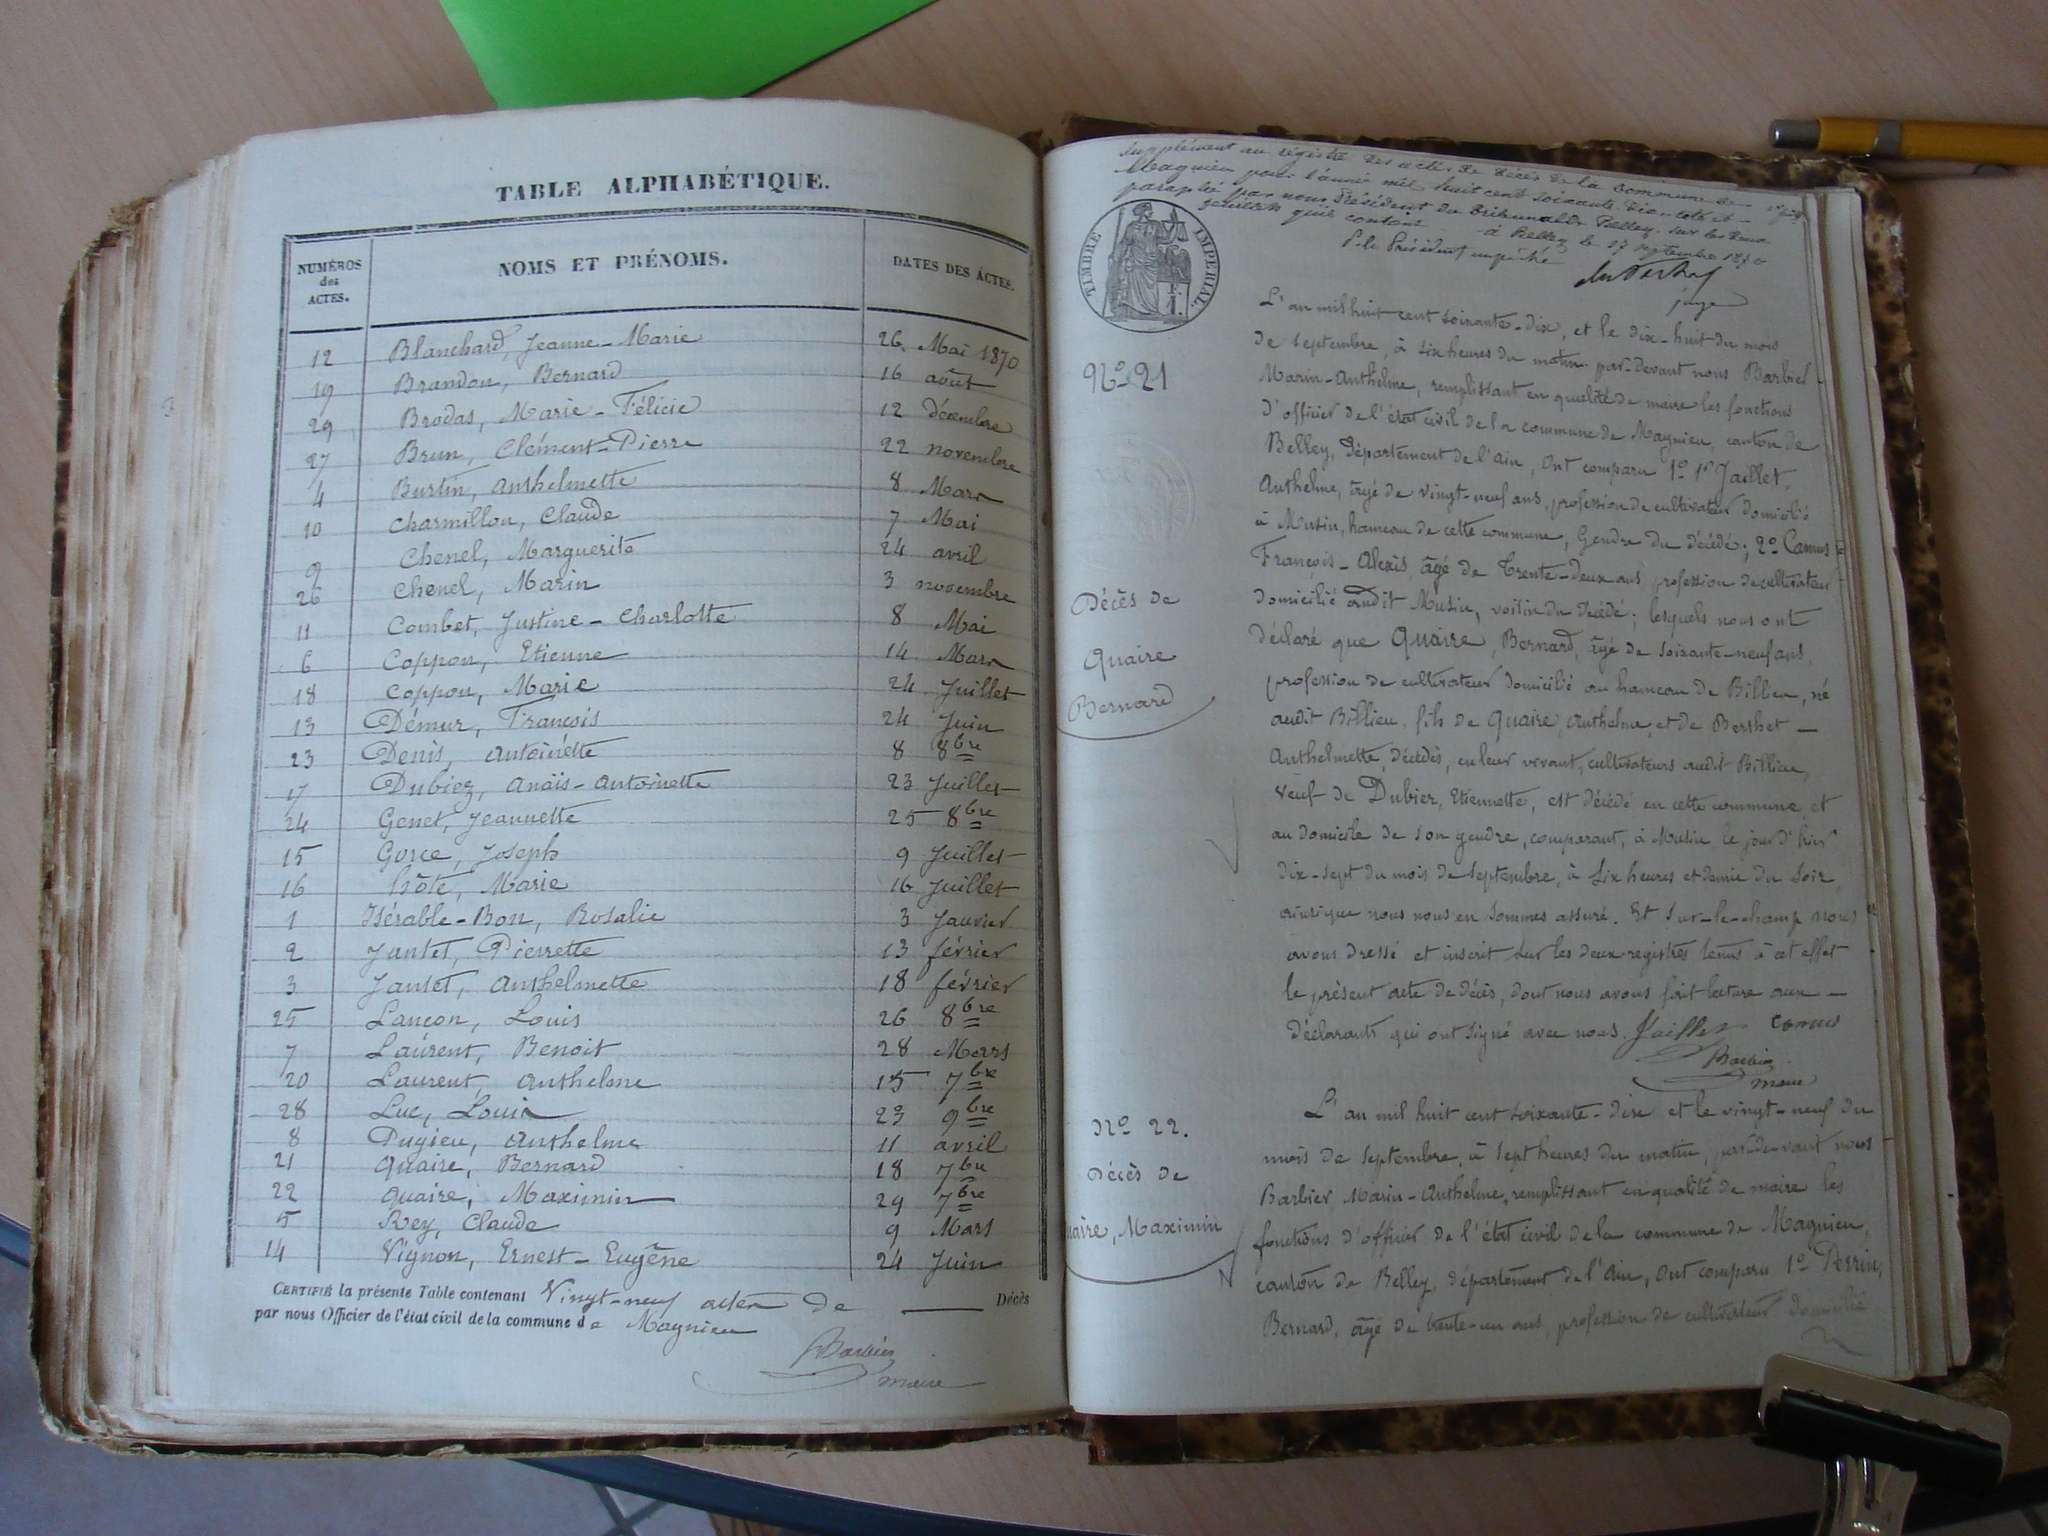 TABLE ALPHABÉTIQUE.
NUMÉROS des ACTES.
NOMS ET PRÉNOMS.
DATES DES ACTES.
12 Blanchard, Jeanne-Marie 26 Mai 1870
19 Brandon, Bernard 16 août
29 Brodas, Marie-Félicie 12 décembre
27 Brun, Clément-Pierre 22 novembre
4 Burtin, Anthelmette 8 Mars
10 Charmillon, Claude 7 Mai
9 Chenel, Marguerite 24 avril
26 Chenel, Marin 3 novembre
11 Combet, Justine-Charlotte 8 Mai
6 Coppon, Etienne 14 Mars
18 Coppon, Marie 24 Juillet
13 Démur, François 24 Juin
23 Denis, Antoinette 8 8bre
17 Dubiez, Anaïs-Antoinette 23 Juillet
24 Genet, Jeannette 25 8bre
15 Gorce, Joseph 9 Juillet
16 hôté, Marie 16 Juillet
1 Isérable-Bon, Rosalie 3 Janvier
2 Jantet, Pierrette 13 février
3 Jantet, Anthelmette 18 février
25 Lançon, Louis 26 8bre
7 Laurent, Benoit 28 Mars
20 Laurent, Anthelme 15 7bre
28 Luc, Louis 23 9bre
8 Pugieu, Anthelme 11 avril
21 Quaire, Bernard 18 7bre
22 Quaire, Maximin 29 7bre
5 Rey, Claude 9 Mars
14 Vignon, Ernest-Eugêne 24 Juin
CERTIFIÉ la présente Table contenant Vingt-neuf actes de Décès
par nous Officier de l'état civil de la commune de Magnieu
Barbier
maire
Supplément au registre des actes de décès de la commune de
Magnieu pour l'année mil huit cent soixante dix, coté et
paraphé par nous Président du Tribunal de Belley, sur les deux
feuillets qu'il contient
à Belley le 17 septembre 1870
P. le Président empêché
juge
TIMBRE IMPÉRIAL.
No 21
Décès de
Quaire
Bernard
L'an mil huit cent soixante-dix, et le dix-huit du mois
de septembre, à six heures du matin par-devant nous Barbier
Marin-Anthelme, remplissant en qualité de maire les fonctions
d'officier de l'état civil de la commune de Magnieu, canton de
Belley, département de l'ain, Ont comparu 1o Jaillet,
Anthelme, âgé de vingt-neuf ans, profession de cultivateur domicilié
à Musin, hameau de cette commune, Gendre du décédé; 2o Camus
François-Alexis, âgé de trente-deux ans profession de cultivateur
domicilié audit Musin, voisin du décédé; lesquels nous ont
déclaré que Quaire, Bernard, âgé de soixante-neuf ans,
profession de cultivateur domicilié au hameau de Billieu, né
audit Billieu, fils de Quaire, Anthelme, et de Berthet
Anthelmette, décédés, en leur vivant, cultivateurs audit Billieu,
veuf de Dubier, Etiennette, est décédé en cette commune et
au domicile de son gendre, comparant, à Musin le jour d'hier
dix-sept du mois de septembre, à six heures et demie du soir,
ainsi que nous nous en sommes assuré. Et sur-le-champ nous
avons dressé et inscrit sur les deux registres tenus à cet effet
le présent acte de décès, dont nous avons fait lecture aux
déclarants qui ont signé avec nous. Jaillet Camus
Barbier
maire
No 22.
Décès de
Quaire, Maximin
L'an mil huit cent soixante-dix et le vingt-neuf du
mois de septembre, à sept heures du matin, par-devant nous
Barbier Marin-Anthelme, remplissant en qualité de maire les
fonctions d'officier de l'état civil de la commune de Magnieu,
canton de Belley, département de l'Ain, Ont comparu 1o Perrin,
Bernard, âgé de trente-un ans, profession de cultivateur domicilié